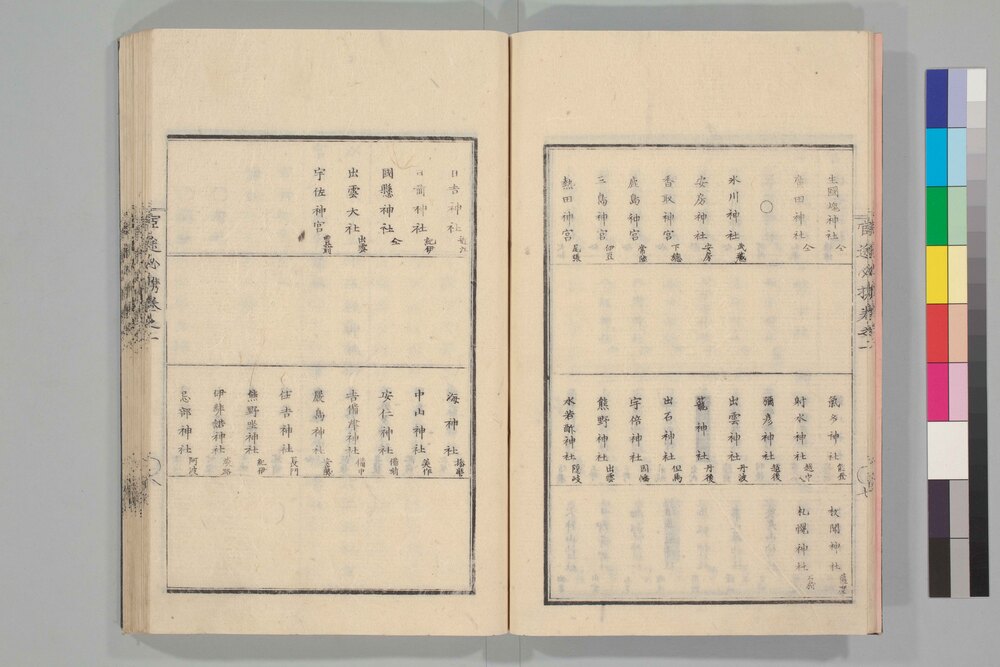 生國魂神社 仝
廣田神社 仝
○
氷川神社 武藏
安房神社 安房
香取神宮 下總
鹿島神宮 常陸
三島神宮 伊豆
熱田神宮 尾張
氣多神社 能登
射水神社 越中
彌彦神社 越後
出雲神社 丹波
籠神社 丹後
出石神社 但馬
宇倍神社 因幡
熊野神社 出雲
水若酢神社 隱岐
枚聞神社 薩摩
札幌神社 石狩
官途必携卷之一
七
日吉神社 近江
日前神社 紀伊
國懸神社 仝
出雲大社 出雲
宇佐神宮 豊前
海神社 播磨
中山神社 美作
安仁神社 備前
吉備津神社 備中
嚴島神社 安藝
住吉神社 長門
熊野坐神社 紀伊
伊弉諾神社 淡路
忌部神社 阿波
官途必携卷之一
八